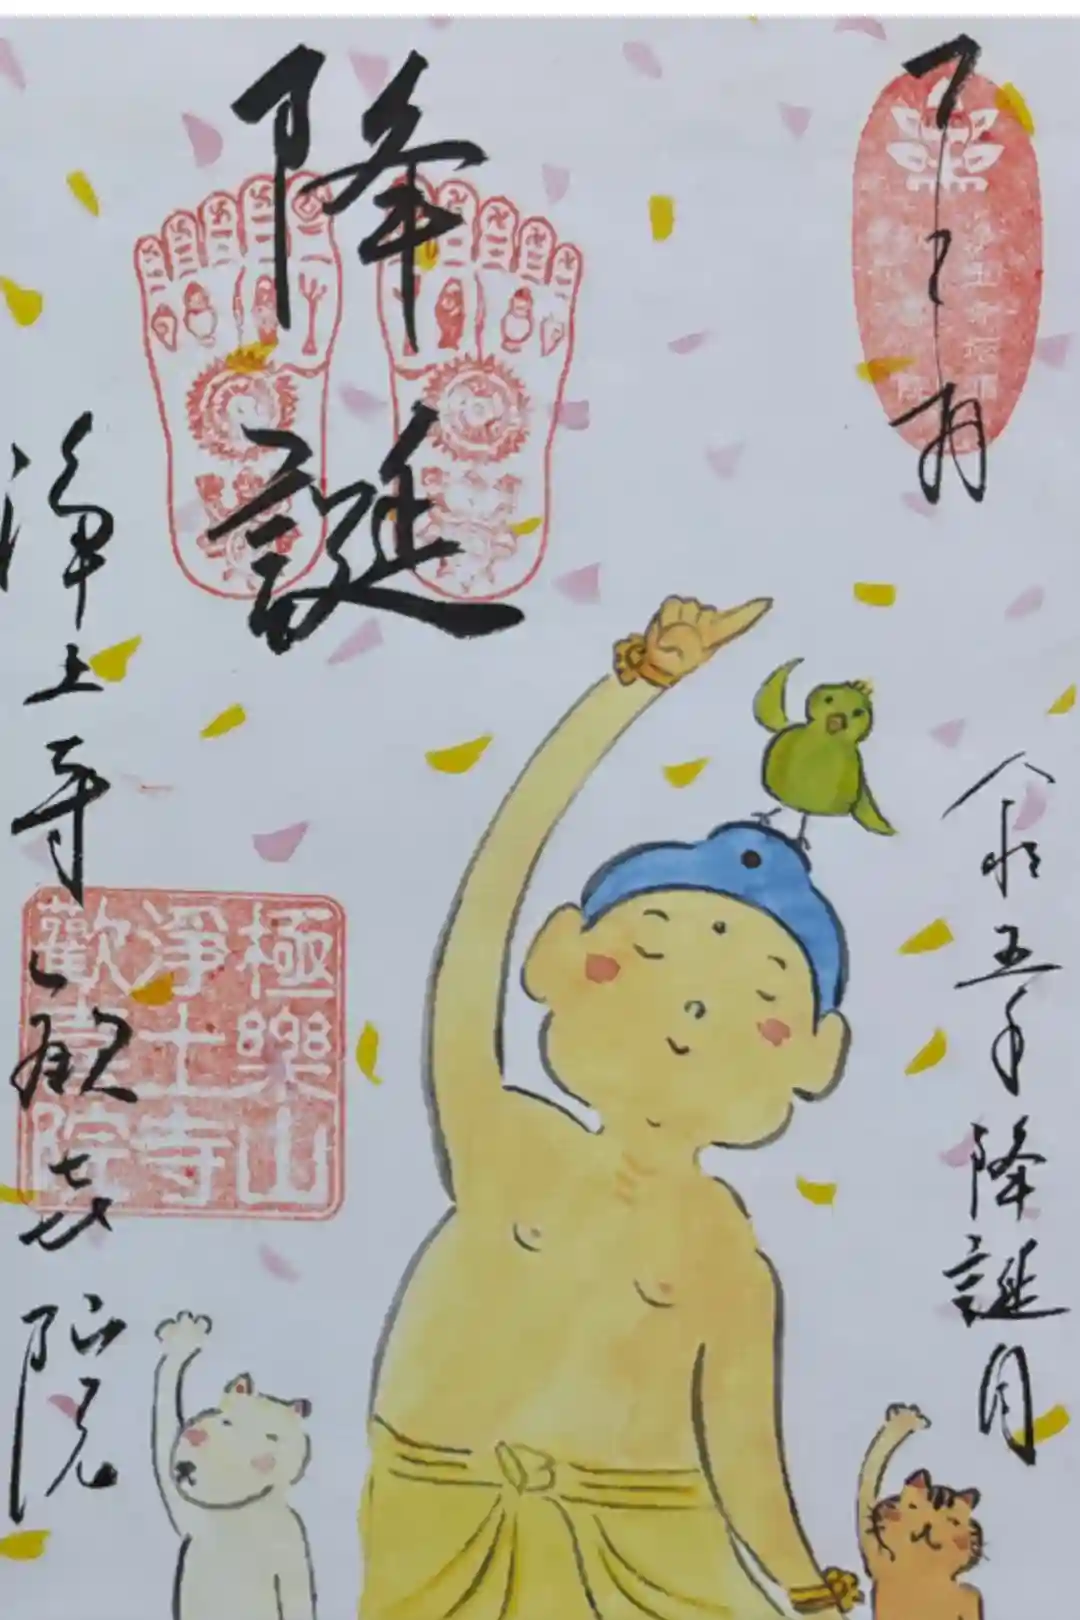 降誕
令和五年降誕月
浄土寺
歓喜院
極樂山
淨土寺
歡喜院